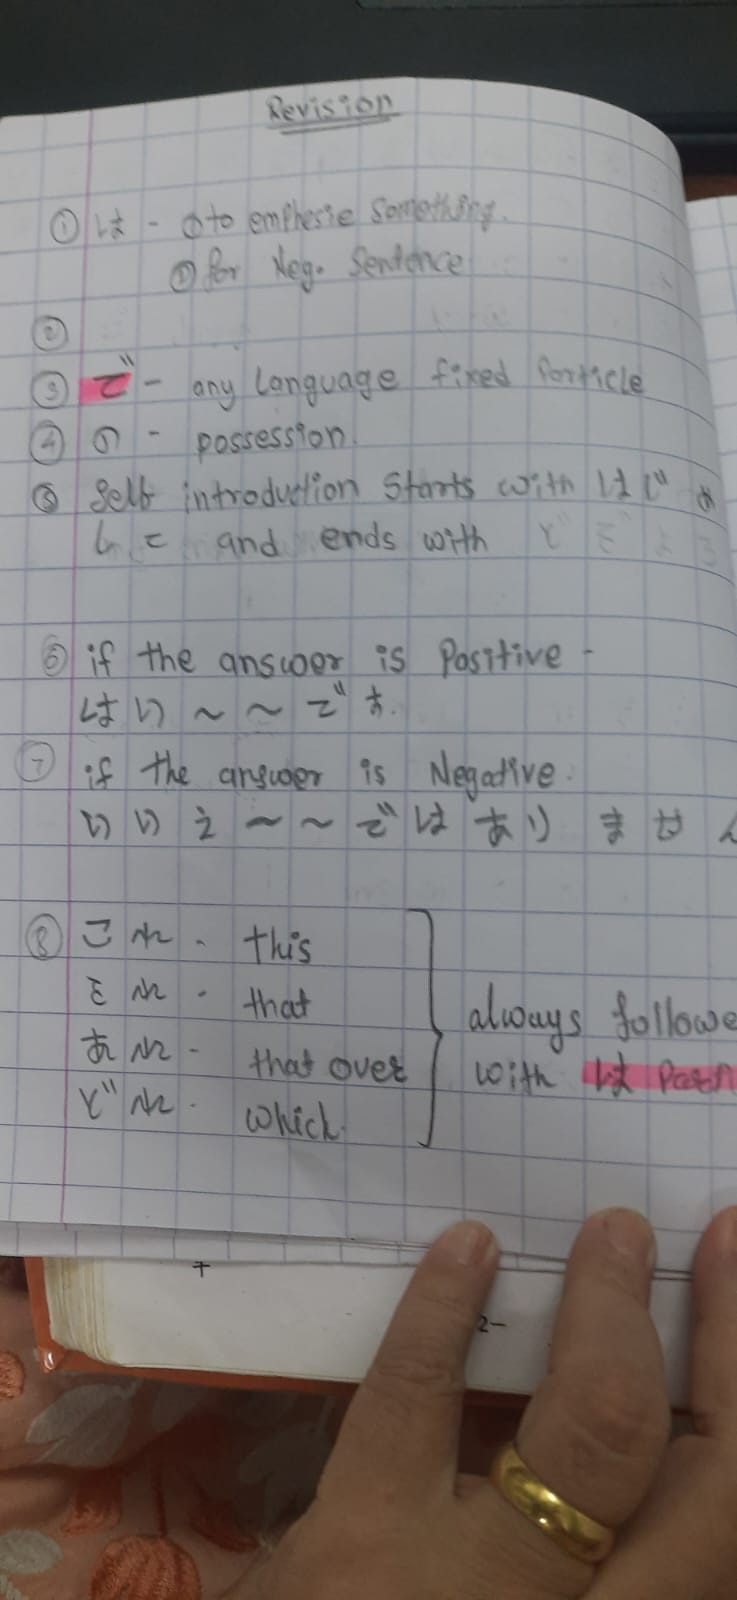 Revision
① は - ① to emphesie something.
② for Neg. Sentence
②
③ で - any language fixed particle
④ の - possession.
⑤ Self introduction Starts with はじめ
and ends with どぞよろ
⑥ if the answer is Positive -
はい 〜 〜 です.
⑦ if the answer is Negative.
いいえ 〜 〜 ではありません
⑧ これ - this
それ - that
あれ - that over
どれ - which.
always followe
with は